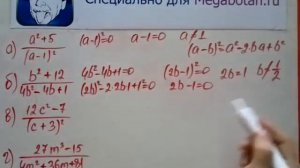 Специально для Megabotan.ru
а) (a²+5)/(a-1)² (a-1)²=0 a-1=0 a≠1
(a-b)²=a²-2ba+b²
б) (b²+12)/(4b²-4b+1) 4b²-4b+1=0 (2b-1)²=0 2b=1 b≠1/2
(2b)²-2·2b·1+1²=0 2b-1=0
в) (12c²-7)/(c+3)²
г) (27m³-15)/(4m²+36m+81)